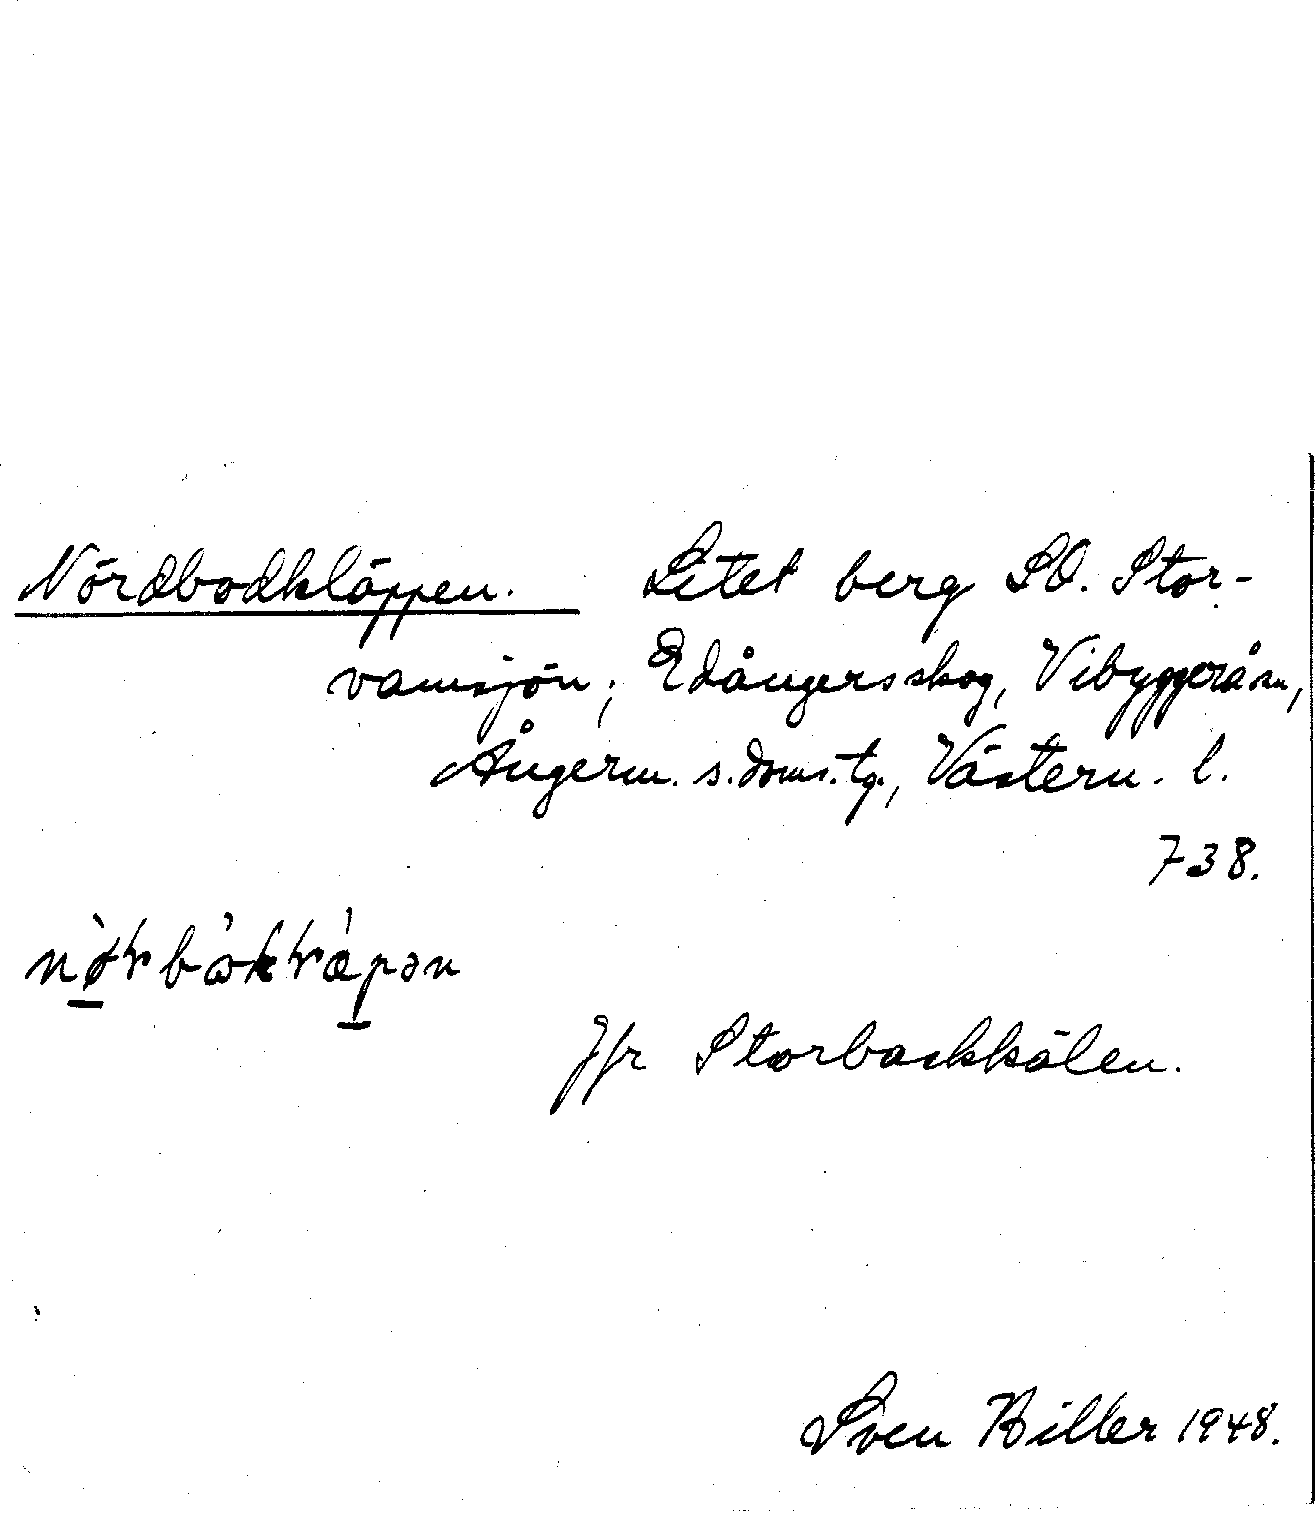 Nördbodkläppen. Litet berg SO. Stor-
vamsjön; Edångersskog, Vibyggerå sn,
Ångerm. s. doms. tg., Västern. l.
738.
Jfr Storbackkälen.
Sven Hiller 1948.